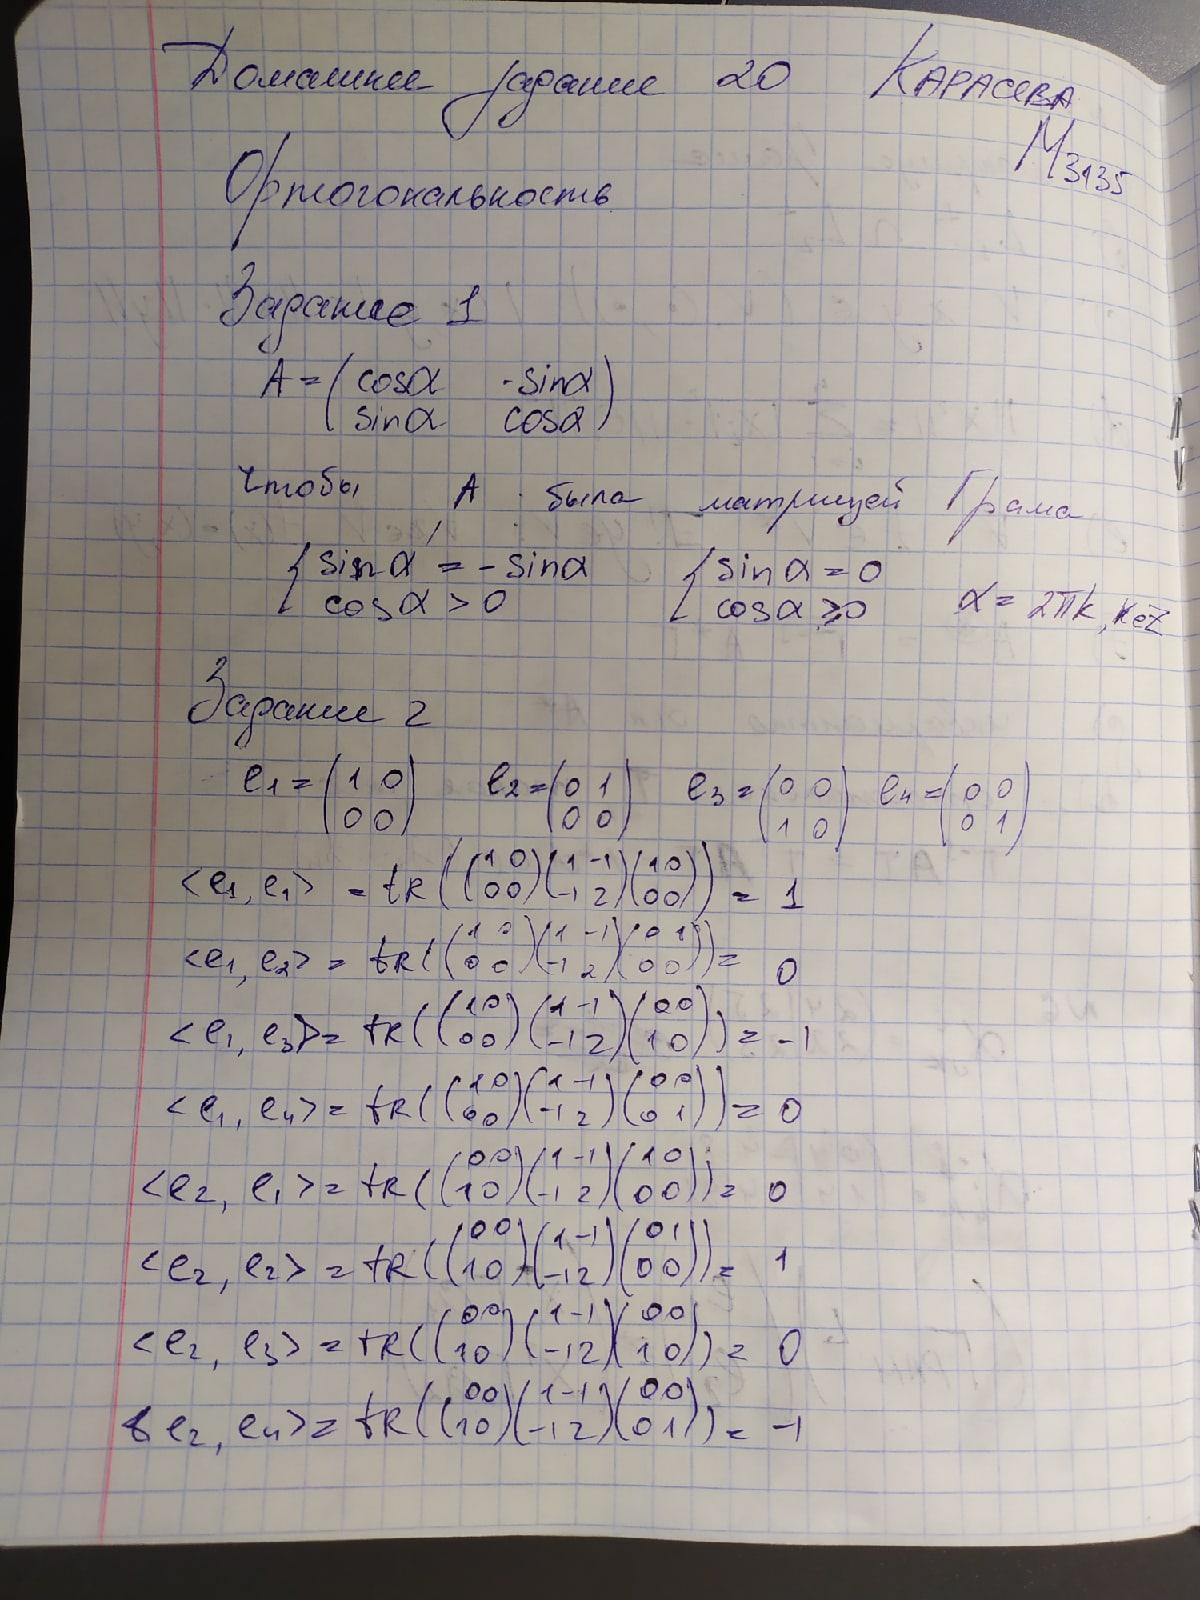 Домашнее задание 20 КАРАСЕВА
M3135
Ортогональность
Задание 1
A = (cosα -sinα
sinα cosα)
Чтобы A была матрицей Грама
{ sinα = -sinα { sinα = 0
cosα > 0 cosα > 0 α = 2πk, k∈Z
Задание 2
e1 = (1 0 e2 = (0 1 e3 = (0 0 e4 = (0 0
0 0) 0 0) 1 0) 0 1)
<e1, e1> = tR((1 0 / 0 0)(1 -1 / -1 2)(1 0 / 0 0)) = 1
<e1, e2> = tR((1 0 / 0 0)(1 -1 / -1 2)(0 1 / 0 0)) = 0
<e1, e3> = tR((1 0 / 0 0)(1 -1 / -1 2)(0 0 / 1 0)) = -1
<e1, e4> = tR((1 0 / 0 0)(1 -1 / -1 2)(0 0 / 0 1)) = 0
<e2, e1> = tR((0 0 / 1 0)(1 -1 / -1 2)(1 0 / 0 0)) = 0
<e2, e2> = tR((0 0 / 1 0)(1 -1 / -1 2)(0 1 / 0 0)) = 1
<e2, e3> = tR((0 0 / 1 0)(1 -1 / -1 2)(0 0 / 1 0)) = 0
<e2, e4> = tR((0 0 / 1 0)(1 -1 / -1 2)(0 0 / 0 1)) = -1